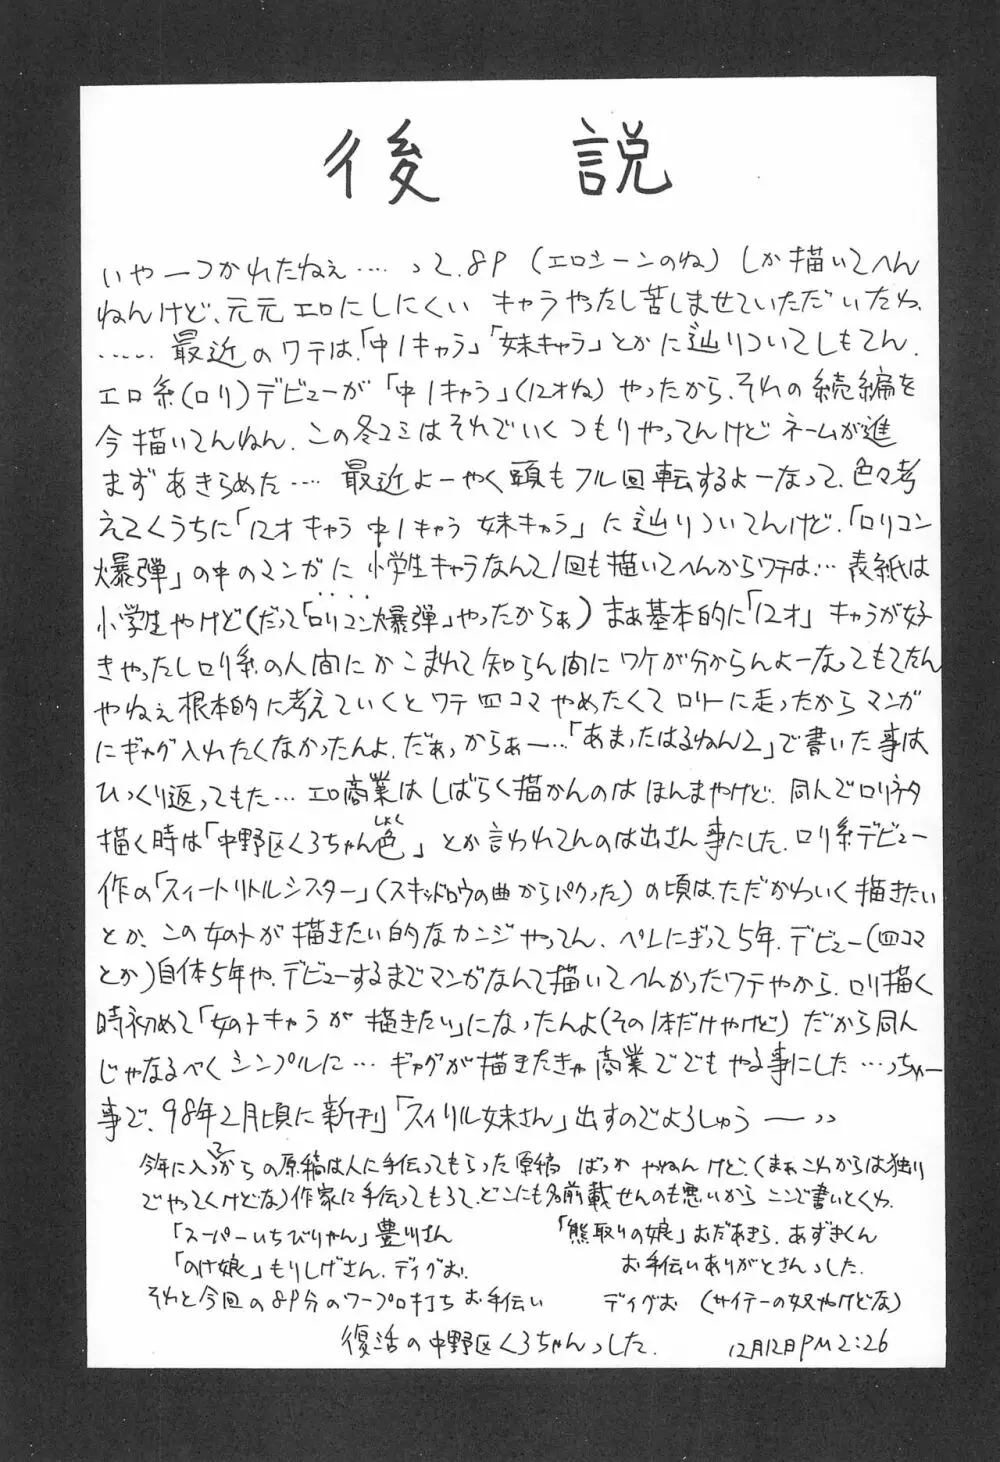 後説
いやーつかれたねぇ……って、8P(エロシーンのね)しか描いてへん
ねんけど、元元エロにしにくい キャラやったし苦しませていただいたわ、
…… 最近のワテは、「中1キャラ」「妹キャラ」とかに辿りついてしもてん。
エロ系(ロリ)デビューが「中1キャラ」(12才ね)やったから、それの続編を
今描いてんねん、この冬コミはそれでいくつもりやってんけどネームが進
まずあきらめた…… 最近よーやく頭もフル回転するよーなって、色々考
えてくうちに「12才キャラ 中1キャラ 妹キャラ」に辿りついてんけど、「ロリコン
爆弾」の中のマンガに 小学生キャラなんて1回も描いてへんからワテは… 表紙は
小学生やけど(だって「ロリコン爆弾」やったからぁ) まぁ基本的に「12才」キャラが好
きやったしロリ系の人間にかこまれて知らん間にワケが分からんよーなってもてたん
やねぇ 根本的に考えていくとワテ四コマやめたくてロリーに走ったからマンガ
にギャグ入れたくなかったんよ、だぁっからぁー…「あまったはるねん2」で書いた事は
ひっくり返ってもた… エロ商業はしばらく描かんのはほんまやけど、同人でロリネタ
描く時は「中野区くろちゃん色しょく」とか言われてんのは出さん事にした、ロリ系デビュー
作の「スィートリトルシスター」(スキッドロウの曲からパクった)の頃は、ただかわいく描きたい
とか、この女のトが描きたい的なカンジやってん、ペンにぎって5年、デビュー(四コマ
とか)自体5年や、デビューするまでマンガなんて描いてへんかったワテやから、ロリ描く
時初めて「女のトキャラが描きたい」になったんよ(その1本だけやけど)だから同人
じゃなるべくシンプルに… ギャグが描きたきゃ商業ででもやる事にした…っちゅー
事で、98年2月頃に新刊「スィリル妹さん」出すのでよろしゅうーっっ
今年に入ってからの原稿は人に手伝ってもらった原稿 ばっか やねんけど、(まぁこれからは独り
でやってくけどな)作家に手伝ってもろて、どこにも名前載せんのも悪いから ここで書いとくわ、
「スーパーいちびりやん」豊川さん 「熊取りの娘」おだあきら、あずきくん
「のけ娘」もりしげさん、ディグお、 お手伝いありがとさんっした、
それと今回の8P分のワープロ打ちお手伝い ディグお (サイテーの奴やけどな)
復活の中野区くろちゃんっした、 12月12日PM2:26